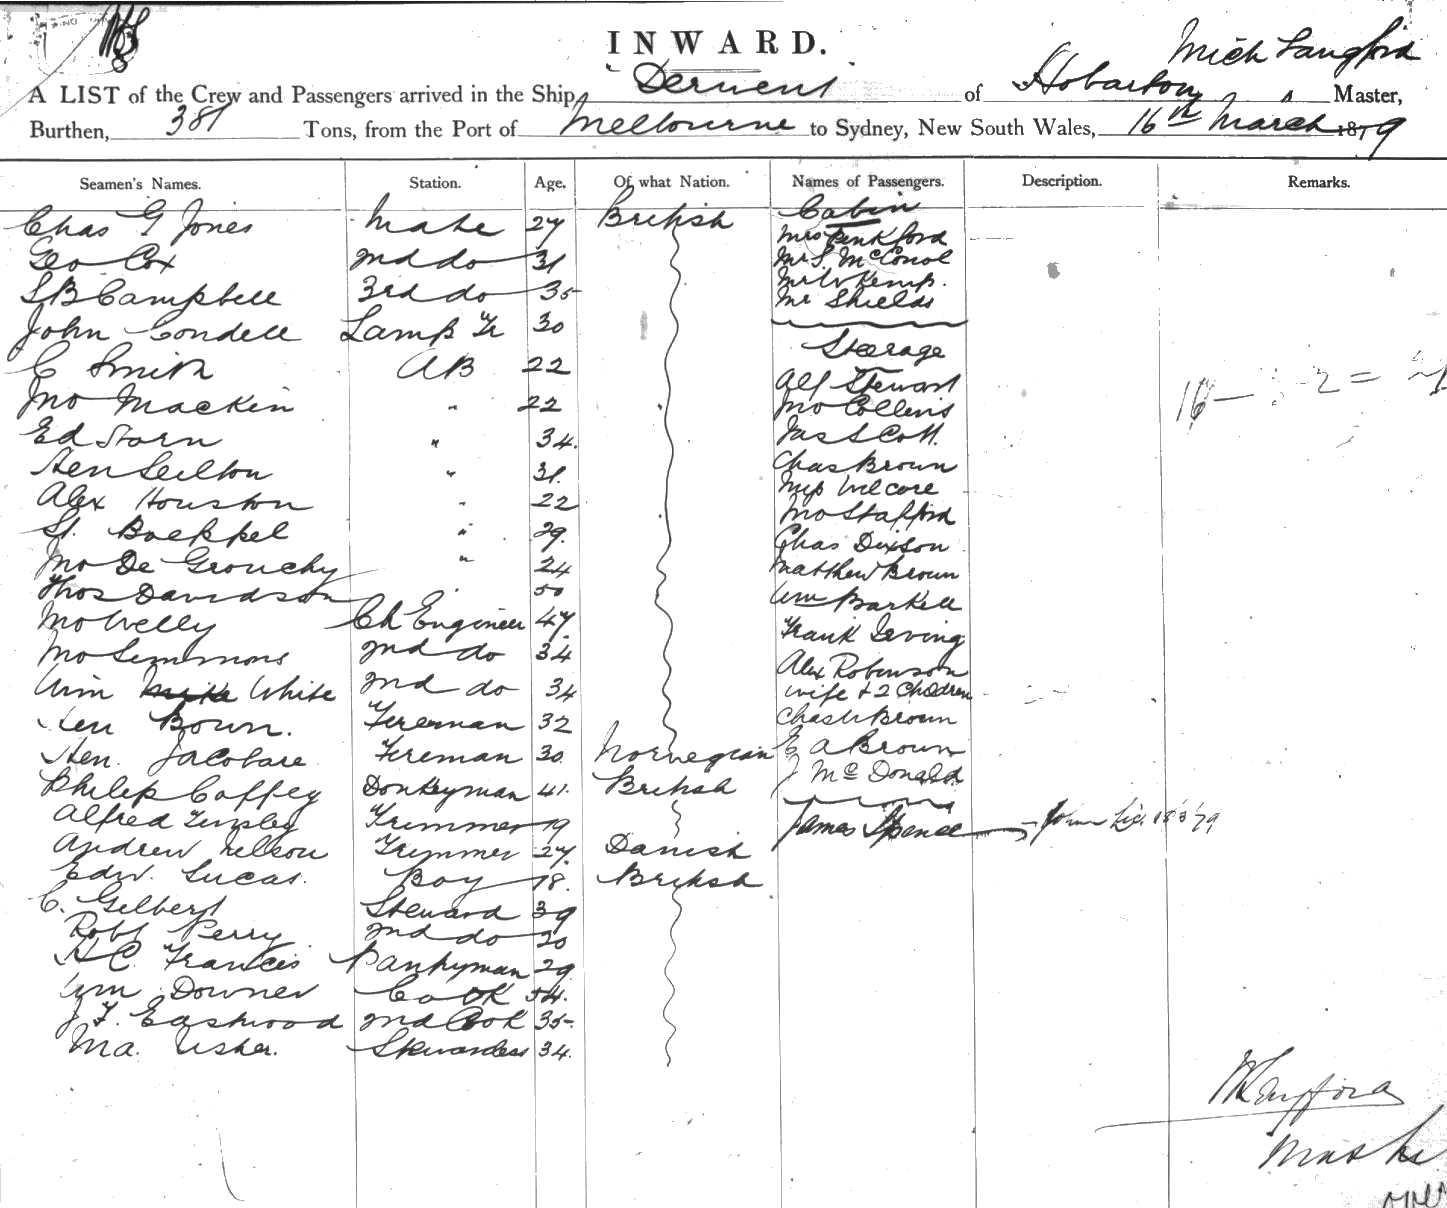 INWARD.
Mich Langford
A LIST of the Crew and Passengers arrived in the Ship, Derwent of Hobarton Master,
Burthen, 381 Tons, from the Port of Melbourne to Sydney, New South Wales, 16th March 1879
Seamen's Names. Station. Age. Of what Nation. Names of Passengers. Description. Remarks.
Chas G Jones Mate 27 British Cabin
Mrs Penkford
Geo Cox 2nd do 31 Mr S. McConol
Mr W Kemp.
S B Campbell 3rd do 35 Mr Shields
John Condell Lamp Tr 30
Steerage
C Smith AB 22 Alf Stewart
Jno Mackin " 22 Jno Collins
Ed Storn " 34. Jas Scott.
Hen Seilton " 31. Chas Brown
Alex Houston " 22
St. Boeppel " 29. Jno Stafford
Jno De Grouchy " 24 Chas Dixson
Matthew Brown
Thos Davidson 50 Wm Barkell
Jno Welly Ch Engineer 47 Frank Irving
Jno Simmons 2nd do 34 Alex Robinson
Wm White 2nd do 34 wife & 2 Children
Hen Bown. Fireman 32 Chas Brown
Hen. Jacobare Fireman 30 Norwegian E A Brown
Philip Coffey Donkeyman 41. British J McDonald.
Alfred Tinsley Trimmer 19 James Spence
Andrew Nelson Trimmer 27. Danish
Edw. Lucas. Boy 18. British
C. Gilbert Steward 39
Robt Perry 2nd do 20
H C Francis Pantryman 29
Wm Downer Cook 54.
J F. Eastwood 2nd Cook 35
M A. Usher. Stewardess 34.
M Langford
Master